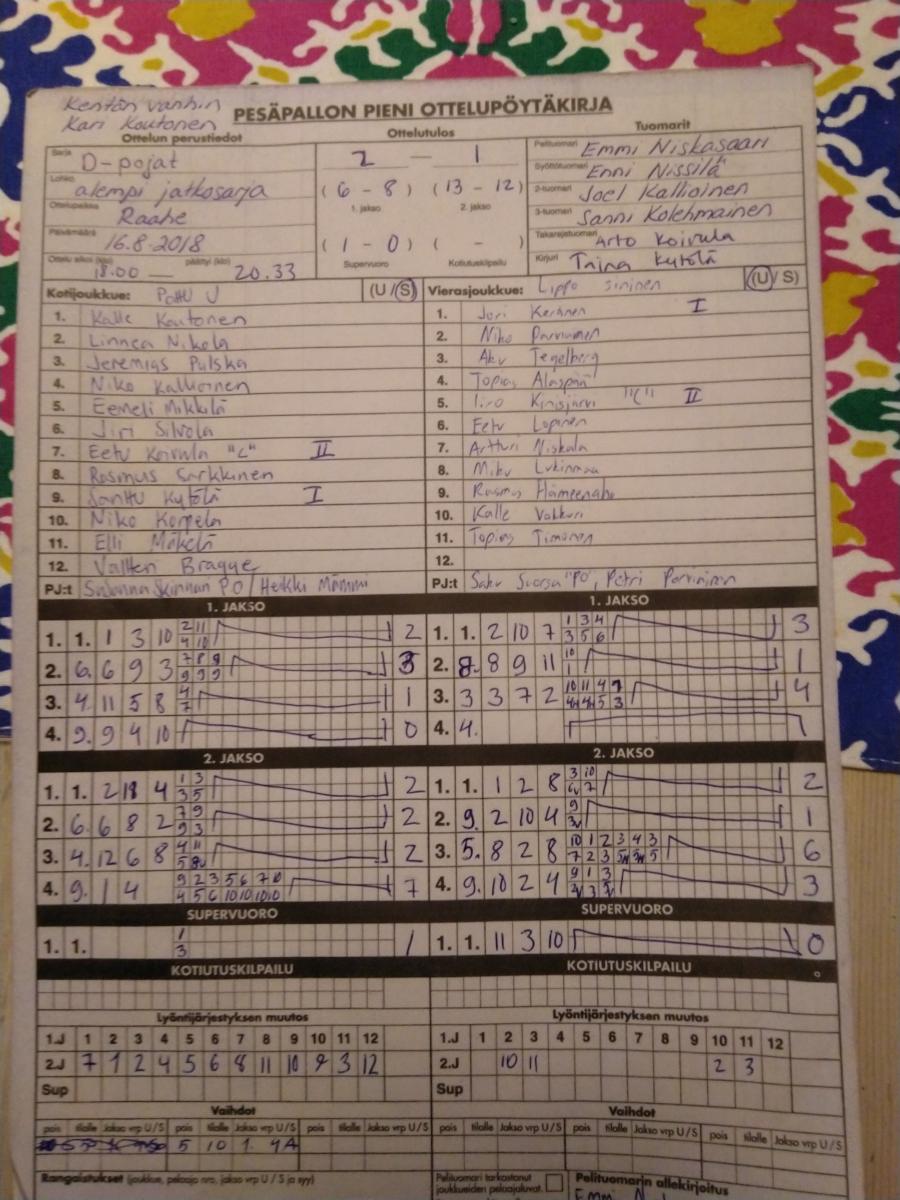 Kentän vanhin
Kari Koutonen
PESÄPALLON PIENI OTTELUPÖYTÄKIRJA
Ottelun perustiedot
Ottelutulos
Tuomarit
Sarja D-pojat
Lohko alempi jatkosarja
Ottelupaikka Raahe
Päivämäärä 16.8.2018
Ottelu alkoi (klo) 18.00 päättyi (klo) 20.33
2 — 1
( 6 - 8 ) ( 13 - 12 )
1. jakso 2. jakso
( 1 - 0 ) ( - )
Supervuoro Kotiutuskilpailu
Pelituomari Emmi Niskasaari
Syöttötuomari Enni Nissilä
2-tuomari Joel Kallioinen
3-tuomari Sanni Kolehmainen
Takarajatuomari Arto Koivula
Kirjuri Taina Kytölä
Kotijoukkue: Pattu J (U/S)
1. Kalle Koutonen
2. Linnea Nikola
3. Jeremias Pulska
4. Niko Kallioinen
5. Eemeli Mikkilä
6. Jiri Silvola
7. Eetu Koivula "C" II
8. Rasmus Sarkkinen
9. Santtu Kytölä I
10. Niko Korpela
11. Elli Mäkelä
12. Valtteri Bragge
PJ:t Susanna Skinnari PO / Heikki Mämmi
Vierasjoukkue: Lippo sininen (U/S)
1. Jori Keränen I
2. Niko Parviainen
3. Aku Tegelberg
4. Topias Alaspää
5. Iiro Kinisjärvi "C" II
6. Eetu Lopinen
7. Artturi Niskala
8. Miku Lukinmaa
9. Rasmus Hämeenaho
10. Kalle Vakkuri
11. Topias Timonen
12.
PJ:t Saku Suorsa "PO", Petri Parviainen
1. JAKSO
1. 1. 1 3 10 2 11 2
4 10
2. 6. 6 9 3 7 8 9 3
9 9 9
3. 4. 11 5 8 4 1
7
4. 9. 9 4 10 0
2. JAKSO
1. 1. 2 4 1 3 2
3 5
2. 6. 6 8 2 7 9 2
9 3
3. 4. 12 6 8 4 11 2
4. 9. 1 4 9 2 3 5 6 7 10 7
4 5 6 10 10 10 10
SUPERVUORO
1. 1. 1 1
3
KOTIUTUSKILPAILU
1. JAKSO
1. 1. 2 10 7 1 3 4 3
3 5 6
2. 8. 8 9 11 10 1
1
3. 3 3 7 2 10 11 4 4
4. 4.
2. JAKSO
1. 1. 1 2 8 3 10 2
2. 9. 2 10 4 9 1
3. 5. 8 2 8 10 1 2 3 4 3 6
4. 9. 10 2 4 9 1 3 3
SUPERVUORO
1. 1. 11 3 10 0
KOTIUTUSKILPAILU
Lyöntijärjestyksen muutos
1.J 1 2 3 4 5 6 7 8 9 10 11 12
2.J 7 1 2 4 5 6 8 11 10 9 3 12
Sup
Vaihdot
pois tilalle Jakso vrp U/S pois tilalle Jakso vrp U/S pois tilalle Jakso vrp U/S
5 10 1. 4A
Rangaistukset (joukkue, pelaaja nro, jakso vrp U/S ja syy)
Lyöntijärjestyksen muutos
1.J 1 2 3 4 5 6 7 8 9 10 11 12
2.J 10 11 2 3
Sup
Vaihdot
pois tilalle Jakso vrp U/S pois tilalle Jakso vrp U/S pois tilalle Jakso vrp U/S
Pelituomari tarkastanut
joukkueiden pelaajaluvat.
Pelituomarin allekirjoitus